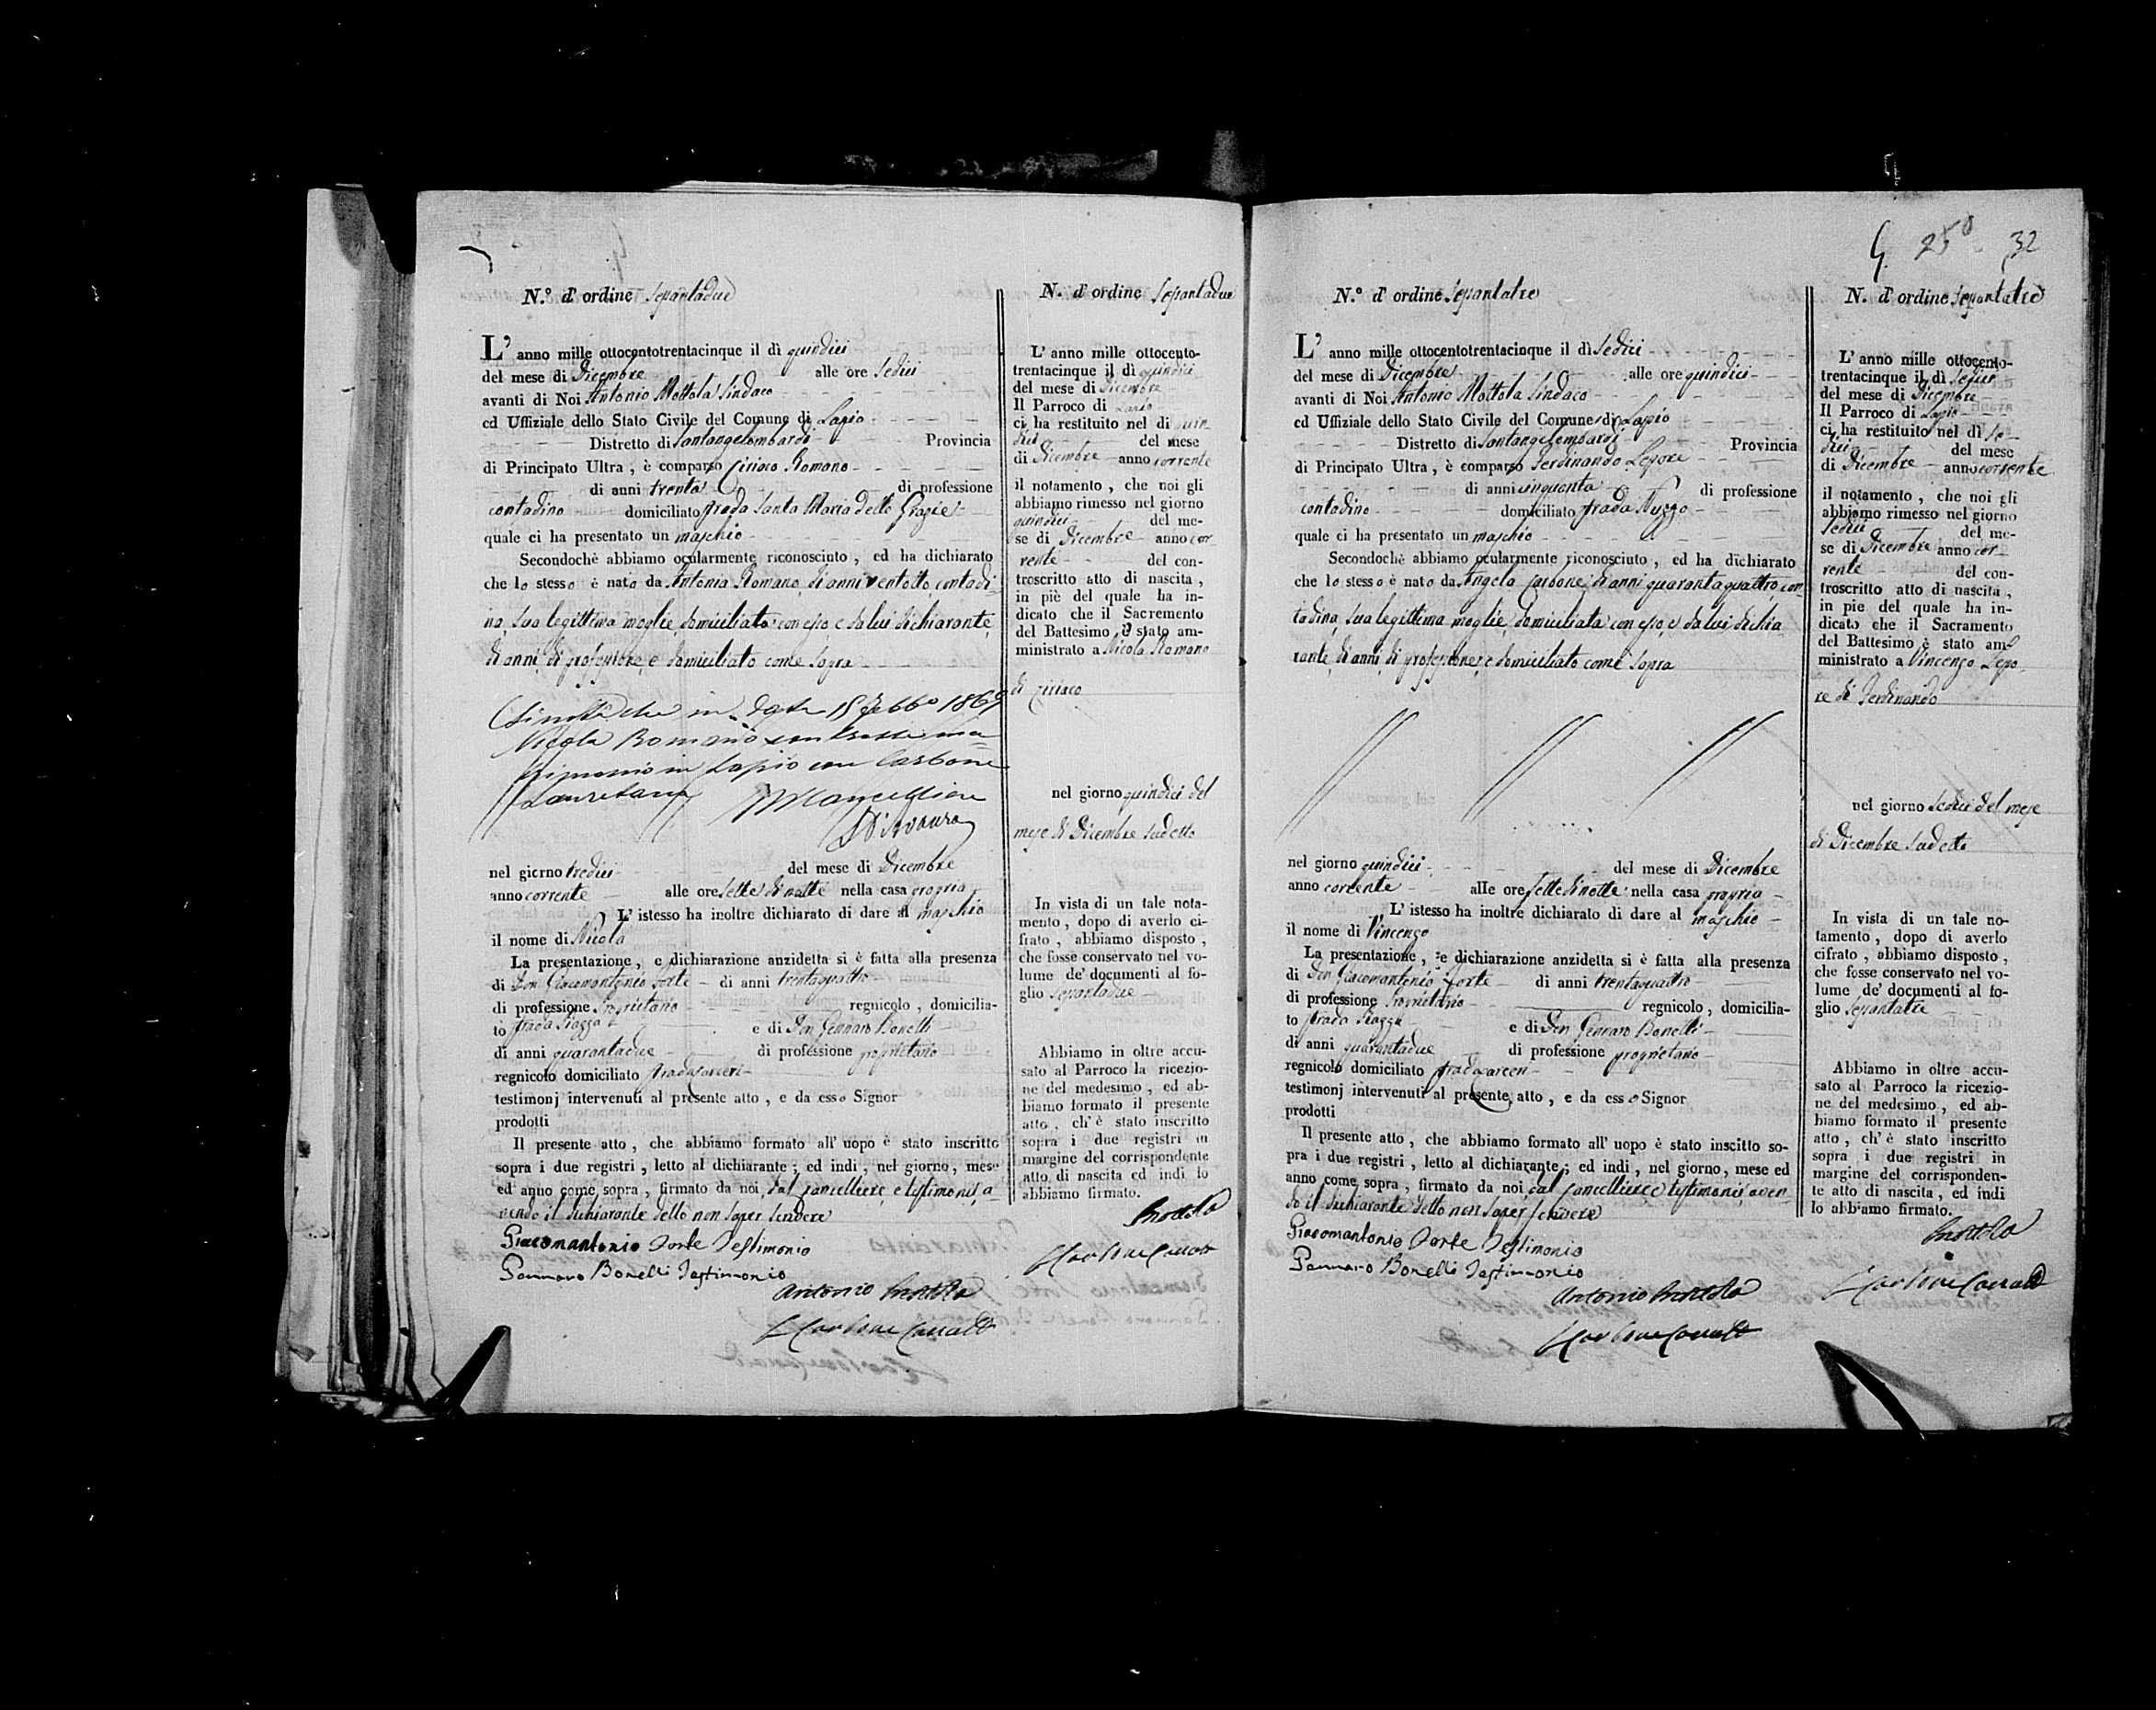 N.° d' ordine Sessantadue
L' anno mille ottocentotrentacinque il dì quindici
del mese di Dicembre alle ore Sedici
avanti di Noi Antonio Mottola Sindaco
ed Uffiziale dello Stato Civile del Comune di Lapio
Distretto di Santangelombardi Provincia
di Principato Ultra , è comparso Ciriaco Romano
di anni trenta di professione
contadino domiciliato strada Santa Maria delle Grazie
quale ci ha presentato un maschio
Secondochè abbiamo ocularmente riconosciuto , ed ha dichiarato
che lo stesso è nato da Antonia Romano, di anni ventotto, contadi-
na, sua legittima moglie, domiciliata con esso e da lui dichiarante,
di anni, di professione, e domiciliato come sopra
Si nota che in data 15 Febb° 1869
Nicola Romano contrasse ma=
trimonio in Lapio con Carbone
Lauretana
nel giorno tredici del mese di Dicembre
anno corrente alle ore sette di notte nella casa propria
L' istesso ha inoltre dichiarato di dare al maschio
il nome di Nicola
La presentazione , e dichiarazione anzidetta si è fatta alla presenza
di Don Giacomantonio Forte di anni trentaquattro
di professione Proprietario regnicolo , domicilia-
to strada Piazza e di Don Gennaro Bonelli
di anni quarantadue di professione proprietario
regnicolo domiciliato strada carceri
testimonj intervenuti al presente atto , e da esso Signor
prodotti
Il presente atto , che abbiamo formato all' uopo è stato inscritto
sopra i due registri , letto al dichiarante ; ed indi , nel giorno , mese
ed anno come sopra , firmato da noi, dal Cancelliere, e testimonj, a-
vendo il dichiarante detto non saper scrivere
Giacomantonio Forte Testimonio
Gennaro Bonelli Testimonio
Antonio Mottola
N. d' ordine Sessantadue
L' anno mille ottocento-
trentacinque il dì quindici
del mese di Dicembre
Il Parroco di Lapio
ci ha restituito nel dì quin
dici del mese
di Dicembre anno corrente
il notamento , che noi gli
abbiamo rimesso nel giorno
quindici del me-
se di Dicembre anno cor-
rente del con-
troscritto atto di nascita ,
in piè del quale ha in-
dicato che il Sacremento
del Battesimo è stato am-
ministrato a Nicola Romano
di Ciriaco
nel giorno quindici del
mese di Dicembre sudetto
In vista di un tale nota-
mento , dopo di averlo ci-
frato , abbiamo disposto ,
che fosse conservato nel vo-
lume de' documenti al fo-
glio sessantadue
Abbiamo in oltre accu-
sato al Parroco la ricezio-
ne del medesimo , ed ab-
biamo formato il presente
atto , ch' è stato inscritto
sopra i due registri in
margine del corrispondente
atto di nascita ed indi lo
abbiamo firmato.
Mottola
25 32
N.° d' ordine Sessantatre
L' anno mille ottocentotrentacinque il dì Sedici
del mese di Dicembre alle ore quindici
avanti di Noi Antonio Mottola Sindaco
ed Uffiziale dello Stato Civile del Comune di Lapio
Distretto di Santangelombardi Provincia
di Principato Ultra , è comparso Ferdinando Lepore
di anni cinquanta di professione
contadino domiciliato strada
quale ci ha presentato un maschio
Secondochè abbiamo ocularmente riconosciuto , ed ha dichiarato
che lo stesso è nato da Angela Carbone, di anni quarantaquattro, con-
tadina, sua legittima moglie, domiciliata con esso, e da lui dichia
rante, di anni, di professione, e domiciliato come sopra
nel giorno quindici del mese di Dicembre
anno corrente alle ore sette di notte nella casa propria
L' istesso ha inoltre dichiarato di dare al maschio
il nome di Vincenzo
La presentazione , e dichiarazione anzidetta si è fatta alla presenza
di Don Giacomantonio Forte di anni trentaquattro
di professione Proprietario regnicolo , domicilia-
to strada Piazza e di Don Gennaro Bonelli
di anni quarantadue di professione proprietario
regnicolo domiciliato strada carceri
testimonj intervenuti al presente atto , e da esso Signor
prodotti
Il presente atto , che abbiamo formato all' uopo è stato inscitto so-
pra i due registri , letto al dichiarante ; ed indi , nel giorno , mese ed
anno come sopra , firmato da noi dal Cancelliere e testimonj, aven
do il dichiarante detto non saper scrivere
Giacomantonio Forte Testimonio
Gennaro Bonelli Testimonio
Antonio Mottola
N. d' ordine Sessantatre
L' anno mille ottocento-
trentacinque il dì Sedici
del mese di Dicembre
Il Parroco di Lapio
ci ha restituito nel dì Se-
dici del mese
di Dicembre anno corrente
il notamento , che noi gli
abbiamo rimesso nel giorno
Sedici del me-
se di Dicembre anno cor-
rente del con-
troscritto atto di nascita ,
in pie del quale ha in-
dicato che il Sacramento
del Battesimo è stato am-
ministrato a Vincenzo Lepo-
re di Ferdinando
nel giorno Sedici del mese
di Dicembre sudetto
In vista di un tale no-
tamento , dopo di averlo
cifrato , abbiamo disposto ,
che fosse conservato nel vo-
lume de' documenti al fo-
glio sessantatre
Abbiamo in oltre accu-
sato al Parroco la ricezio-
ne del medesimo , ed ab-
biamo formato il presente
atto , ch' è stato inscritto
sopra i due registri in
margine del corrisponden-
te atto di nascita , ed indi
lo abbiamo firmato.
Mottola